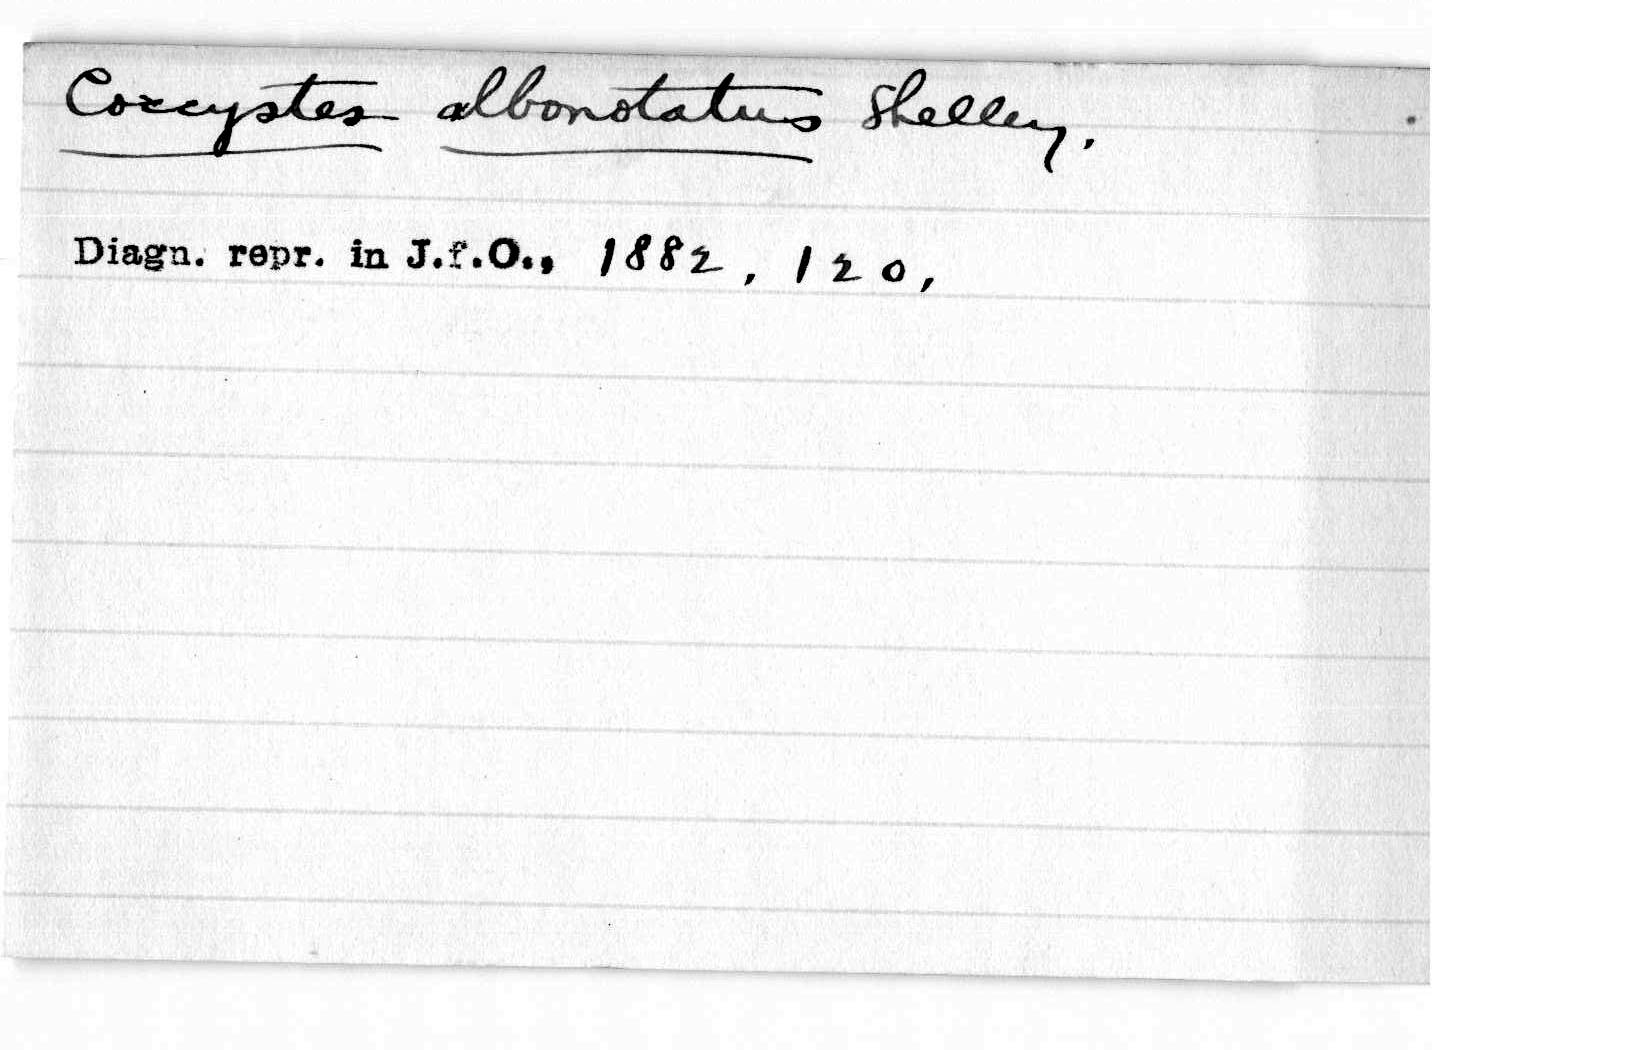 Coccystes albonotatus Shelley.
Diagn. repr. in J.f.O., 1882, 120,